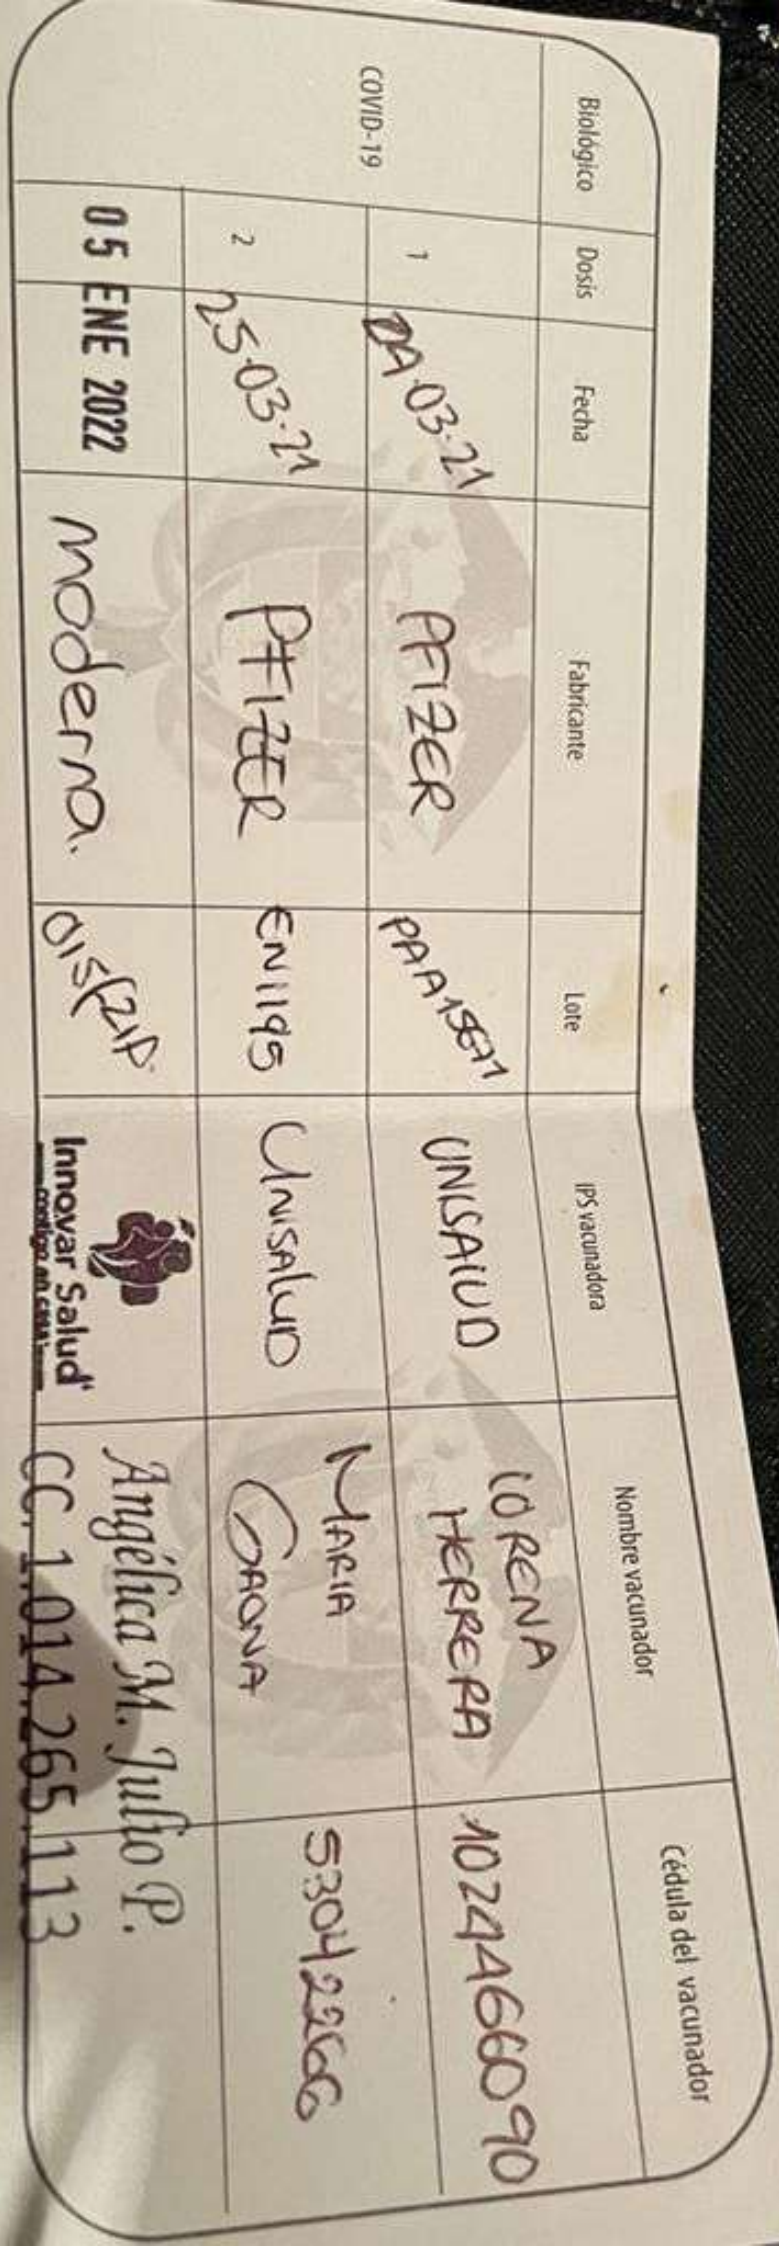 Biológico Dosis Fecha Fabricante Lote IPS vacunadora Nombre vacunador Cédula del vacunador
COVID-19
1 03-21 PFIZER UNISALUD LORENA HERRERA 1024466090
2 25-03-21 PFIZER EN1195 UNISALUD MARIA GAONA 53042266
05 ENE 2022 Moderna. Innovar Salud Angélica M. Julio P.
contigo en casa
CC. 1.014.265.113